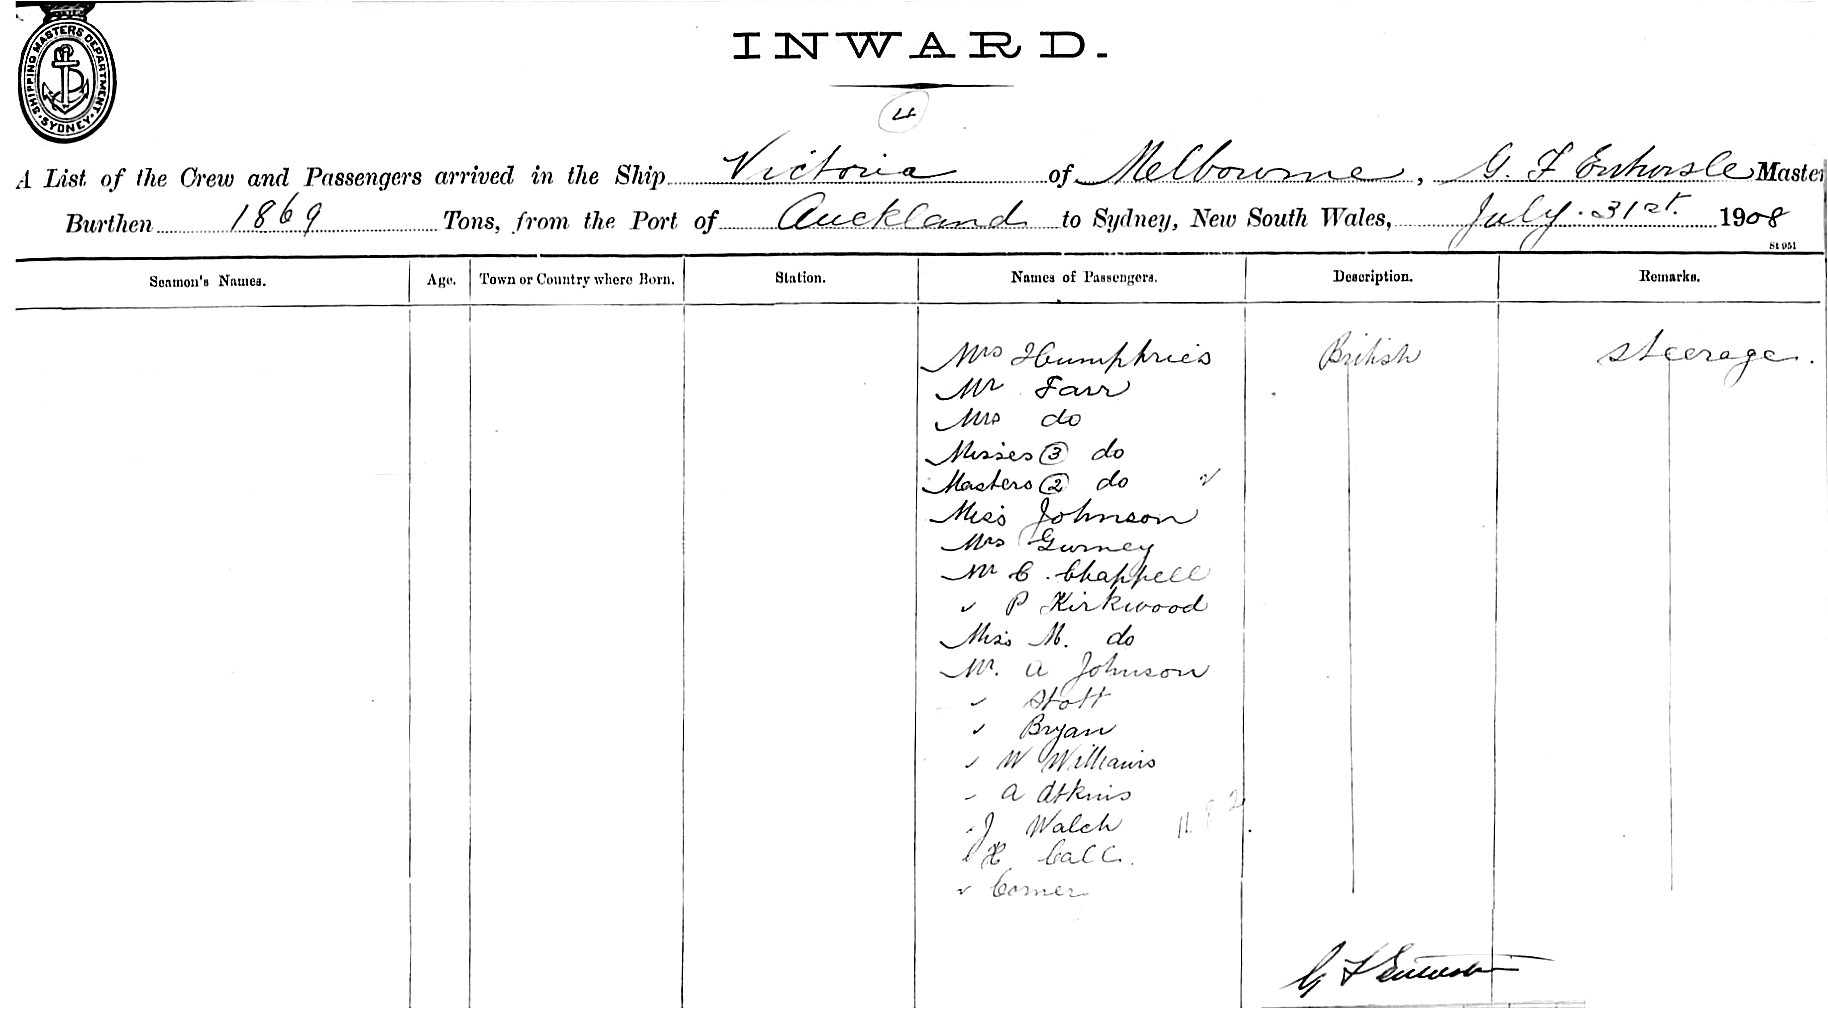 SHIPPING MASTERS DEPARTMENT. SYDNEY.
INWARD.
4
A List of the Crew and Passengers arrived in the Ship Victoria of Melbourne, G. F Entwisle Master
Burthen 1869 Tons, from the Port of Auckland to Sydney, New South Wales, July 31st. 1908
St 951
Seamen's Names. Age. Town or Country where Born. Station. Names of Passengers. Description. Remarks.
Mrs Humphries British Steerage.
Mr Farr
Mrs do
Misses 3 do
Masters 2 do
Miss Johnson
Mrs Gurney
Mr C. Chappell
" P Kirkwood
Miss M. do
Mr. A Johnson
" Stott
" Bryan
" W Williams
" A Atkins
" J Walch
" H Call.
" Comer
G F Entwisle